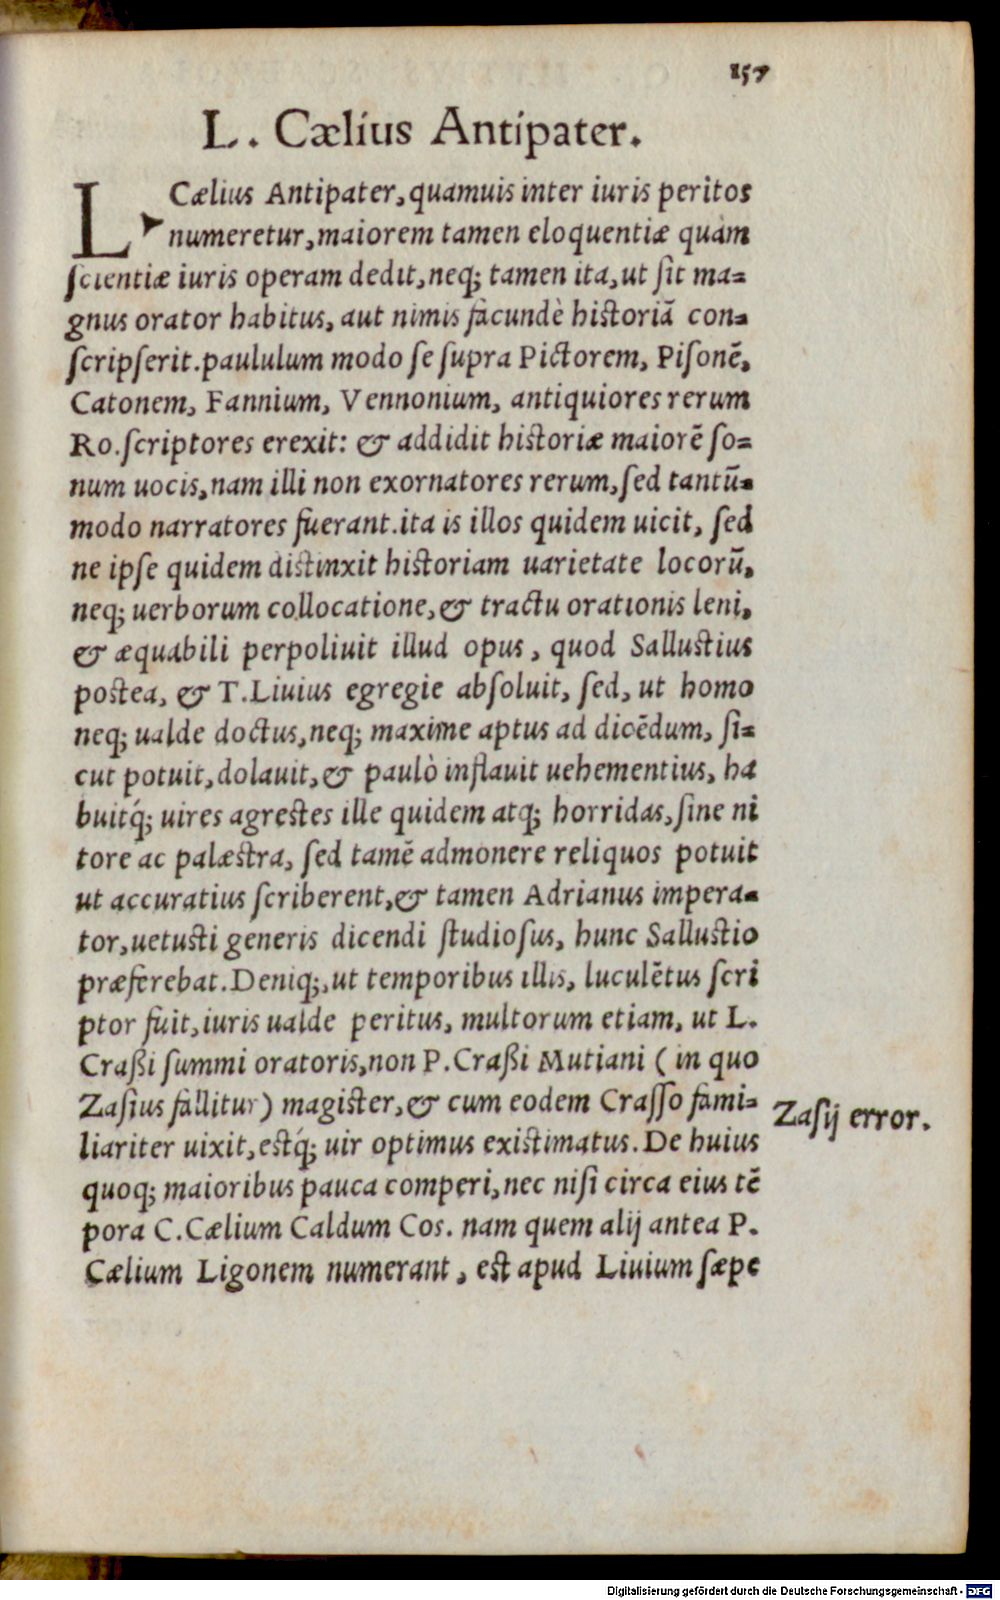 157
L. Cælius Antipater.
L. Cælius Antipater, quamuis inter iuris peritos
numeretur, maiorem tamen eloquentiæ quàm
ſcientiæ iuris operam dedit, neq; tamen ita, ut ſit ma=
gnus orator habitus, aut nimis facundè hiſtoriā con=
ſcripſerit. paululum modo ſe ſupra Pictorem, Piſonē,
Catonem, Fannium, Vennonium, antiquiores rerum
Ro. ſcriptores erexit: & addidit hiſtoriæ maiorē ſo=
num uocis, nam illi non exornatores rerum, ſed tantū=
modo narratores fuerant. ita is illos quidem uicit, ſed
ne ipſe quidem diſtinxit hiſtoriam uarietate locorū,
neq; uerborum collocatione, & tractu orationis leni,
& æquabili perpoliuit illud opus, quod Salluſtius
poſtea, & T. Liuius egregie abſoluit, ſed, ut homo
neq; ualde doctus, neq; maxime aptus ad dicēdum, ſi=
cut potuit, dolauit, & paulò inflauit uehementius, ha
buitq́; uires agreſtes ille quidem atq; horridas, ſine ni
tore ac palæſtra, ſed tamē admonere reliquos potuit
ut accuratius ſcriberent, & tamen Adrianus impera=
tor, uetuſti generis dicendi ſtudioſus, hunc Salluſtio
præferebat. Deniq;, ut temporibus illis, luculētus ſcri
ptor fuit, iuris ualde peritus, multorum etiam, ut L.
Craßi ſummi oratoris, non P. Craßi Mutiani ( in quo
Zaſius fallitur) magiſter, & cum eodem Craſſo fami=
liariter uixit, eſtq́; uir optimus exiſtimatus. De huius
quoq; maioribus pauca comperi, nec niſi circa eius tē
pora C. Cælium Caldum Cos. nam quem alij antea P.
Cælium Ligonem numerant, eſt apud Liuium ſæpe
Zaſij error.
Digitalisierung gefördert durch die Deutsche Forschungsgemeinschaft - DFG